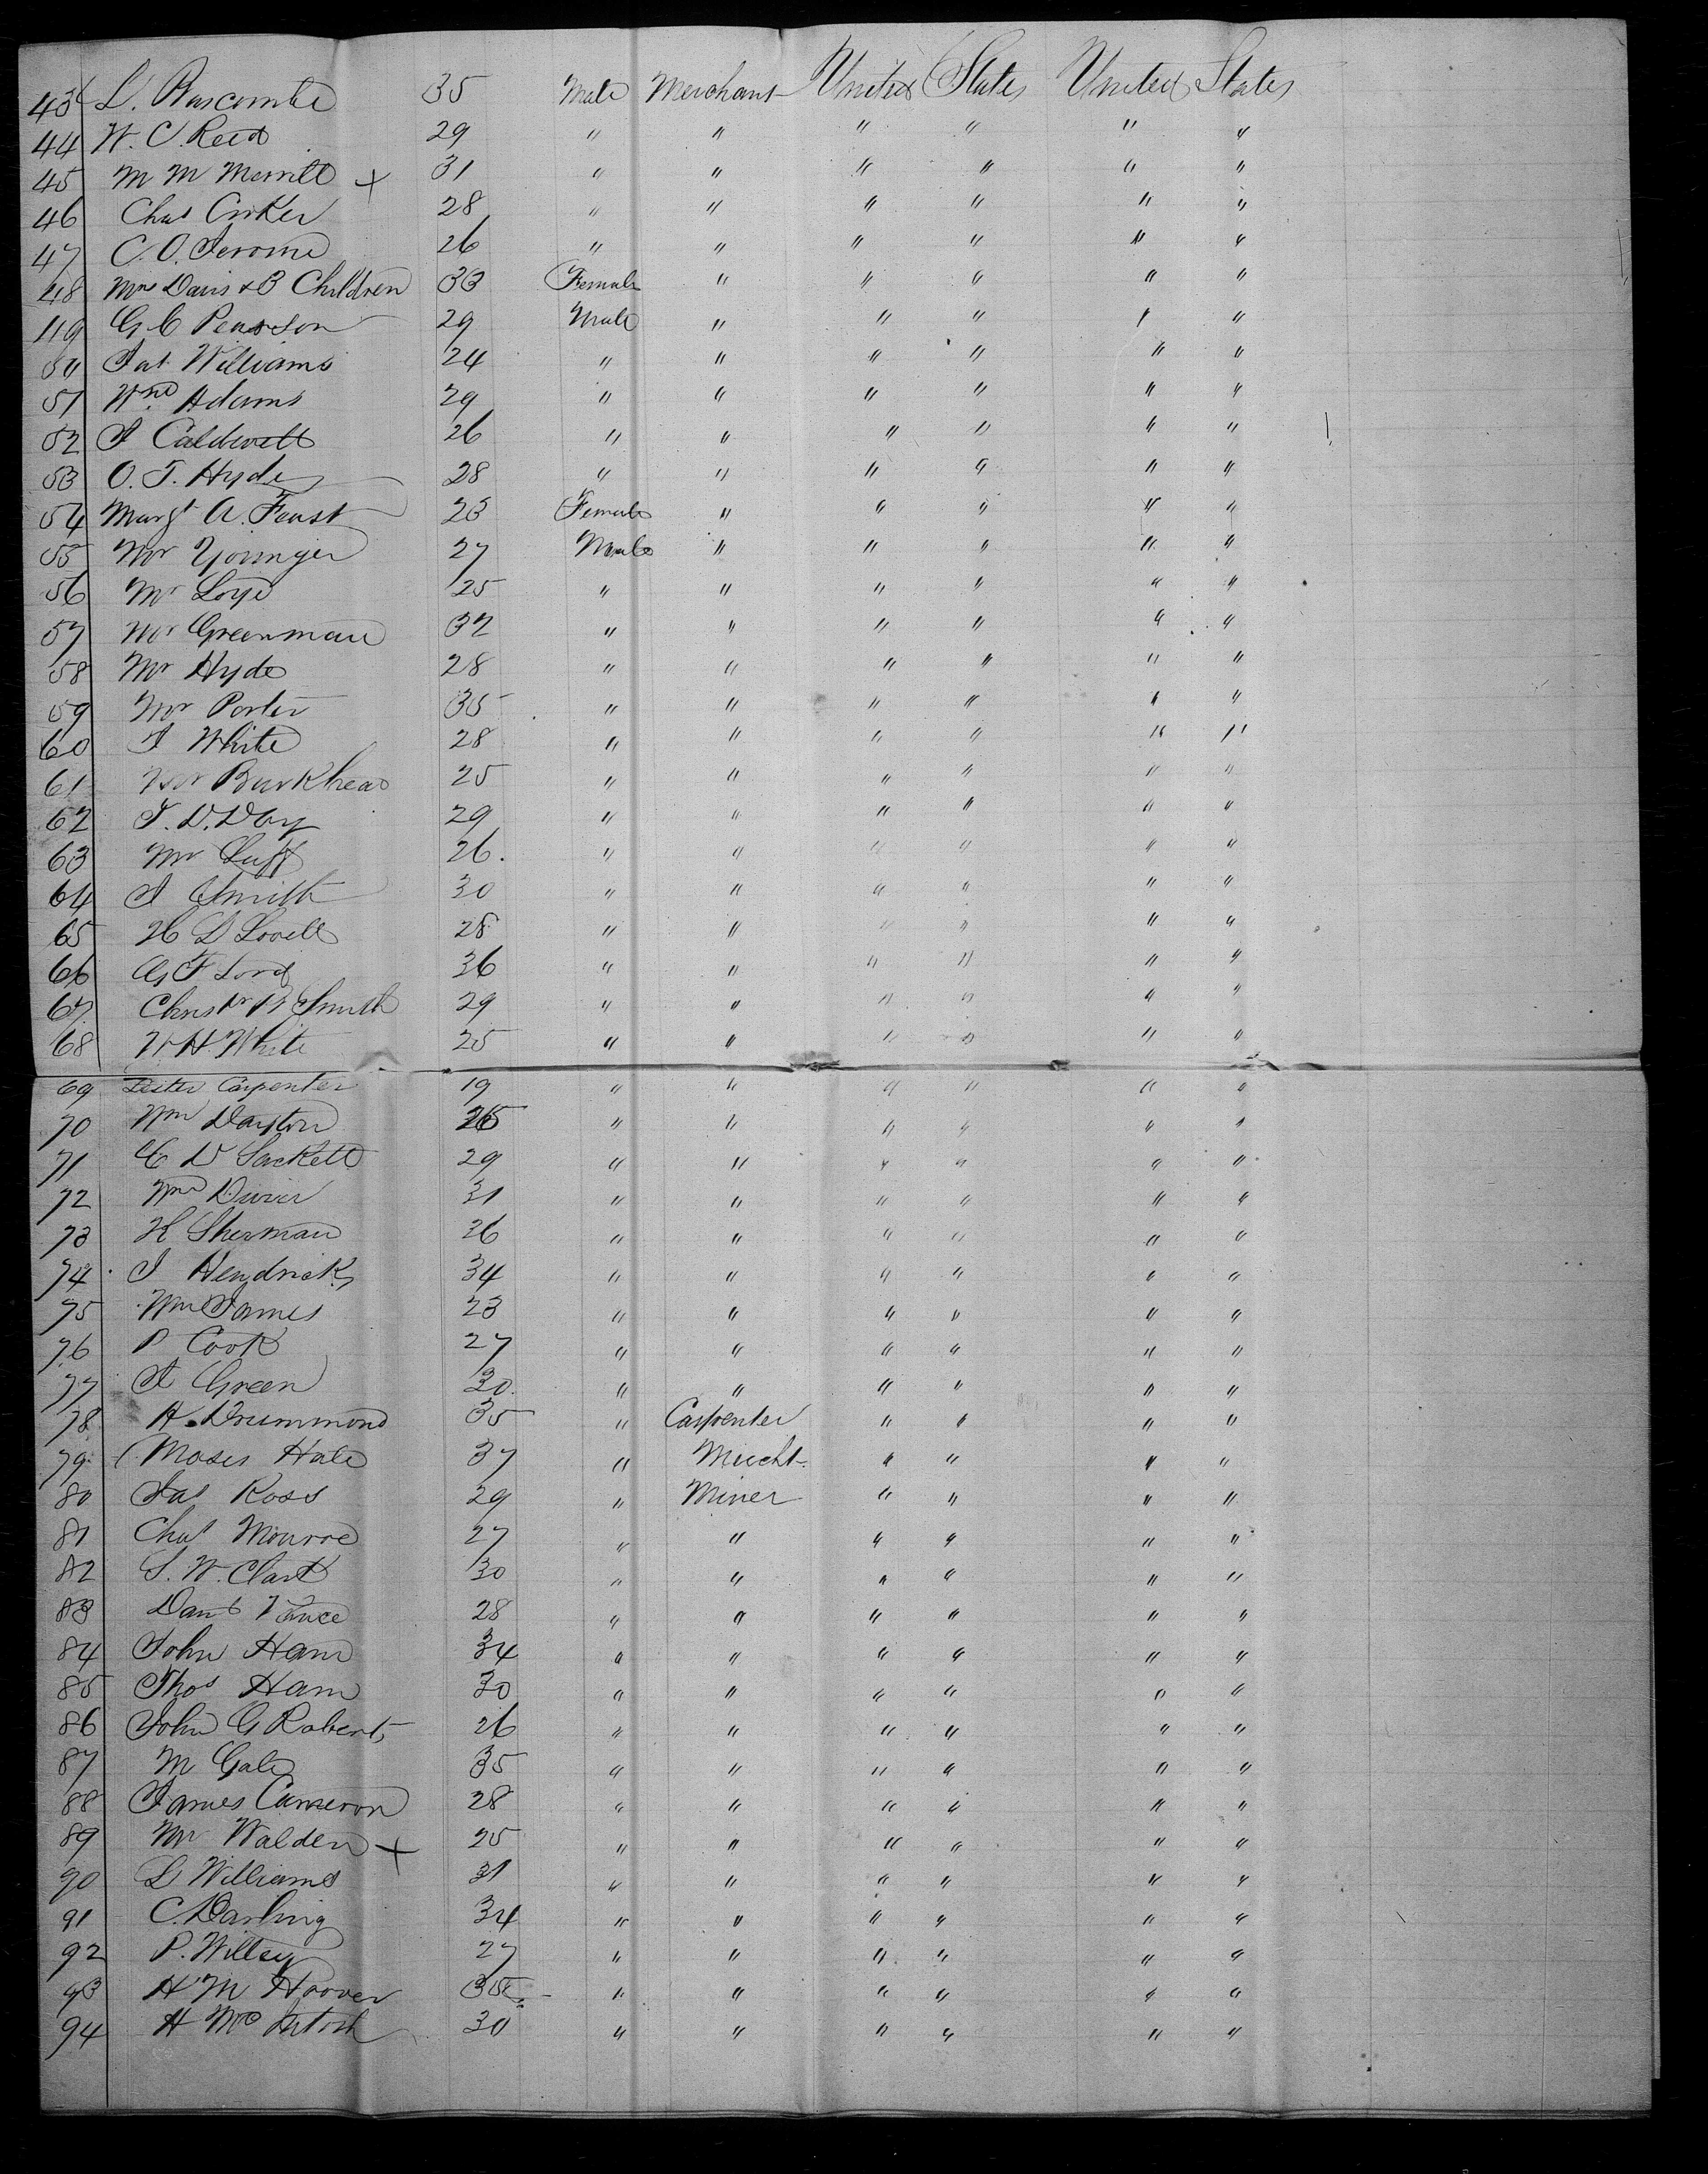 43 L. Bascombe 35 Male Merchant United States United States
44 W. C. Reed 29 " " " " " "
45 M M Merrill + 31 " " " " " "
46 Chas Coker 28 " " " " " "
47 C. O. Jerome 26 " " " " " "
48 Mrs Davis & 3 Children 33 Female " " " " "
49 G C Pearson 29 Male " " " " "
50 Jas Williams 24 " " " " " "
51 Wm Adams 29 " " " " " "
52 J Caldwell 26 " " " " " "
53 O. T. Hyde 28 " " " " " "
54 Margt A. Foust 23 Female " " " " "
55 Mr Younger 27 Male " " " " "
56 Mr Loyd 25 " " " " " "
57 Mr Greenman 32 " " " " " "
58 Mr Hyde 28 " " " " " "
59 Mr Porter 35 " " " " " "
60 J White 28 " " " " " "
61 Mr Burkhead 25 " " " " " "
62 J. D. Day 29 " " " " " "
63 Mr Luff 26. " " " " " "
64 J Smith 30 " " " " " "
65 H D Lovell 28 " " " " " "
66 G F Lord 36 " " " " " "
67 Christr B Smith 29 " " " " " "
68 W H. White 25 " " " " " "
69 Lester Carpenter 19 " " " " " "
70 Wm Dayton 26 " " " " " "
71 C D Sackett 29 " " " " " "
72 Wm Divier 31 " " " " " "
73 H Sherman 26 " " " " " "
74 J Hendricks 34 " " " " " "
75 Wm James 23 " " " " " "
76 P Cook 27 " " " " " "
77 A Green 30 " " " " " "
78 H. Drummond 35 " Carpenter " " " "
79 Moses Hale 37 " Mercht. " " " "
80 Jas Ross 29 " Miner " " " "
81 Chas Monroe 27 " " " " " "
82 S. W. Clark 30 " " " " " "
83 Danl Vance 28 " " " " " "
84 John Ham 34 " " " " " "
85 Thos Ham 30 " " " " " "
86 John G Roberts 26 " " " " " "
87 M Gale 35 " " " " " "
88 James Cameron 28 " " " " " "
89 Mr Walden + 25 " " " " " "
90 L Williams 31 " " " " " "
91 C. Darling 34 " " " " " "
92 P. Willsey 27 " " " " " "
93 H M Hoover 35 " " " " " "
94 H McIntosh 30 " " " " " "